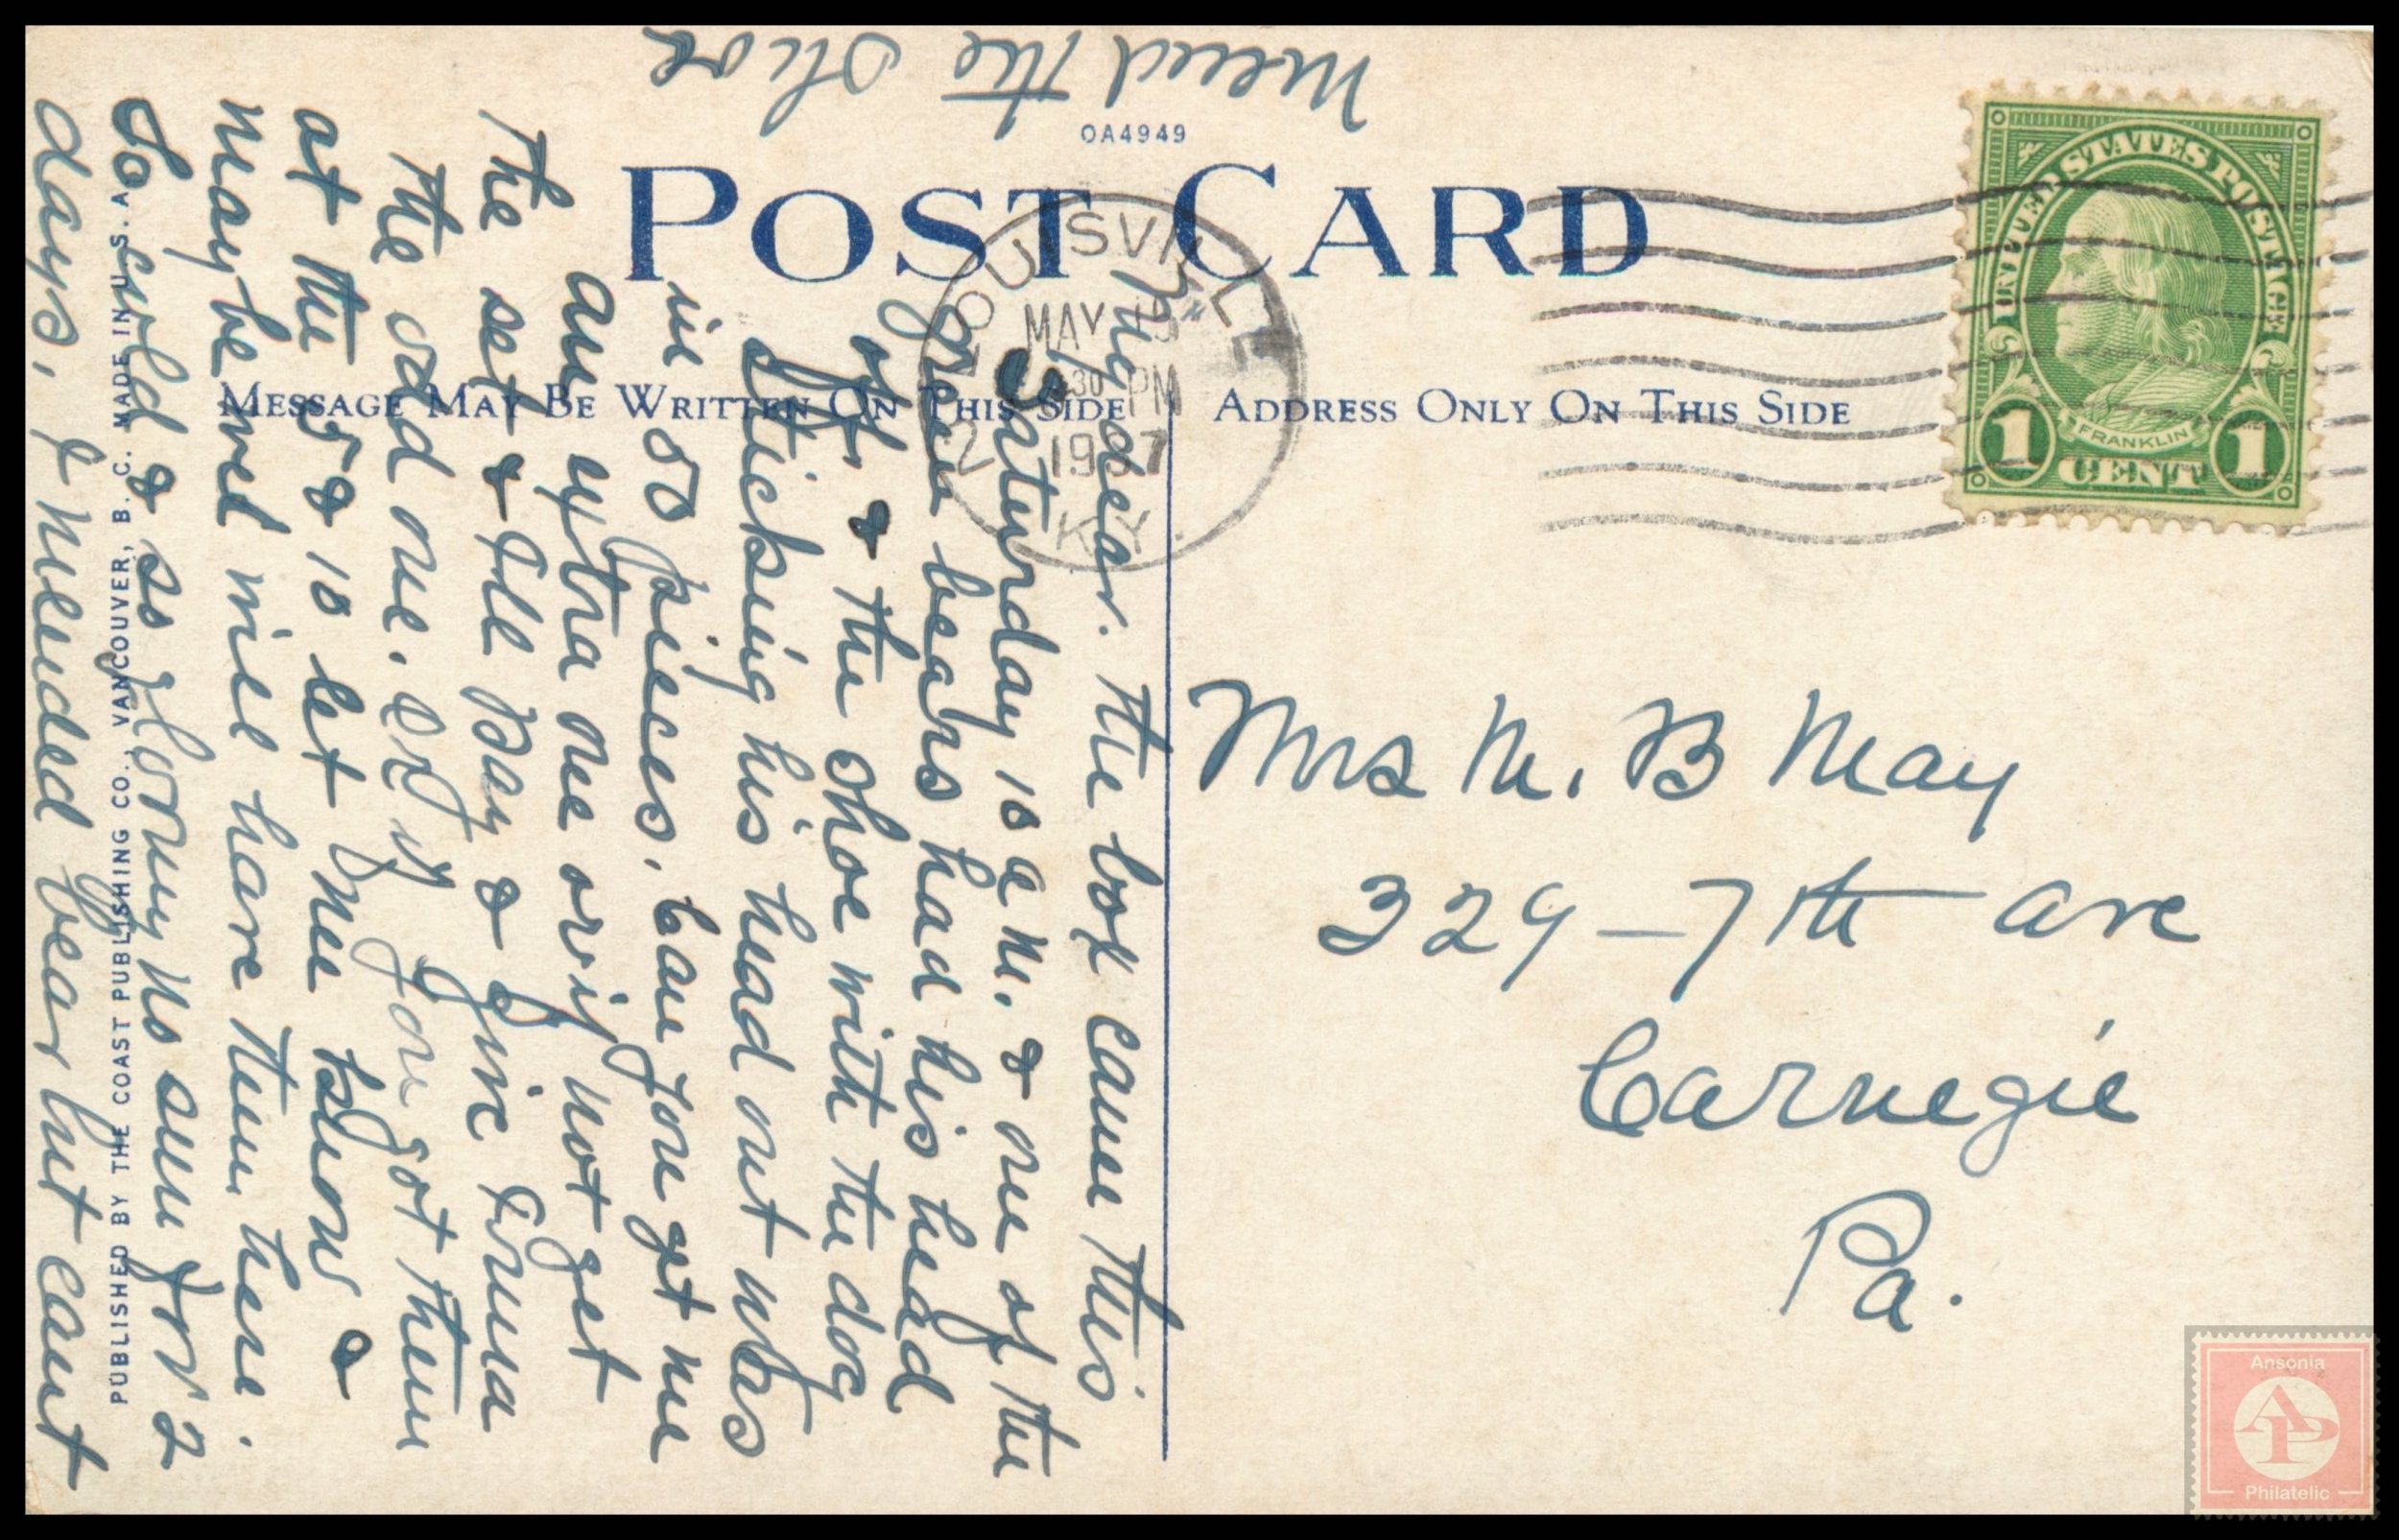 OA4949
POST CARD
MESSAGE MAY BE WRITTEN ON THIS SIDE
ADDRESS ONLY ON THIS SIDE
LOUISVILLE
MAY
30 PM
1937
KY.
UNITED STATES POSTAGE
FRANKLIN
1 CENT 1
Mrs M. B May
329-7th ave
Carnegie
Pa.
My dear. The box came this
Saturday 10 a m. & one of the
green bears had his head
off, & the shoe with the dog
sticking his head out was
in 50 pieces. Can you get me
an extra one or if not get
the set & Ill pay & give Erma
the odd one. If you got them
at the 5 & 10 let me know &
maybe we will have them here.
So cold & so gloomy no sun for 2
days, I mended bear but cant
mend the shoe
PUBLISHED BY THE COAST PUBLISHING CO., VANCOUVER, B. C. MADE IN U. S. A.
Ansonia
AP
Philatelic